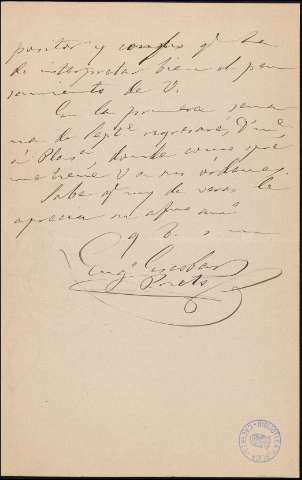 positor y confío qe ha
de interpretar bien el pen
samiento de V.
En la primera sema
na de Septe regresaré, D. m.,
á Plasa donde
me tiene V. a sus órdenes.
Sabe qe muy de veras le
aprecia su afmo amo
q. b. s. m.
Eugo Escobar
Prieto